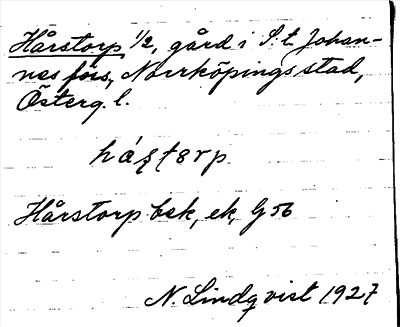 Hårstorp ½, gård i S:t Johan-
nes förs, Norrköpings stad,
Österg. l.
Hårstorp bsk, ek, G 56
N. Lindqvist 1927